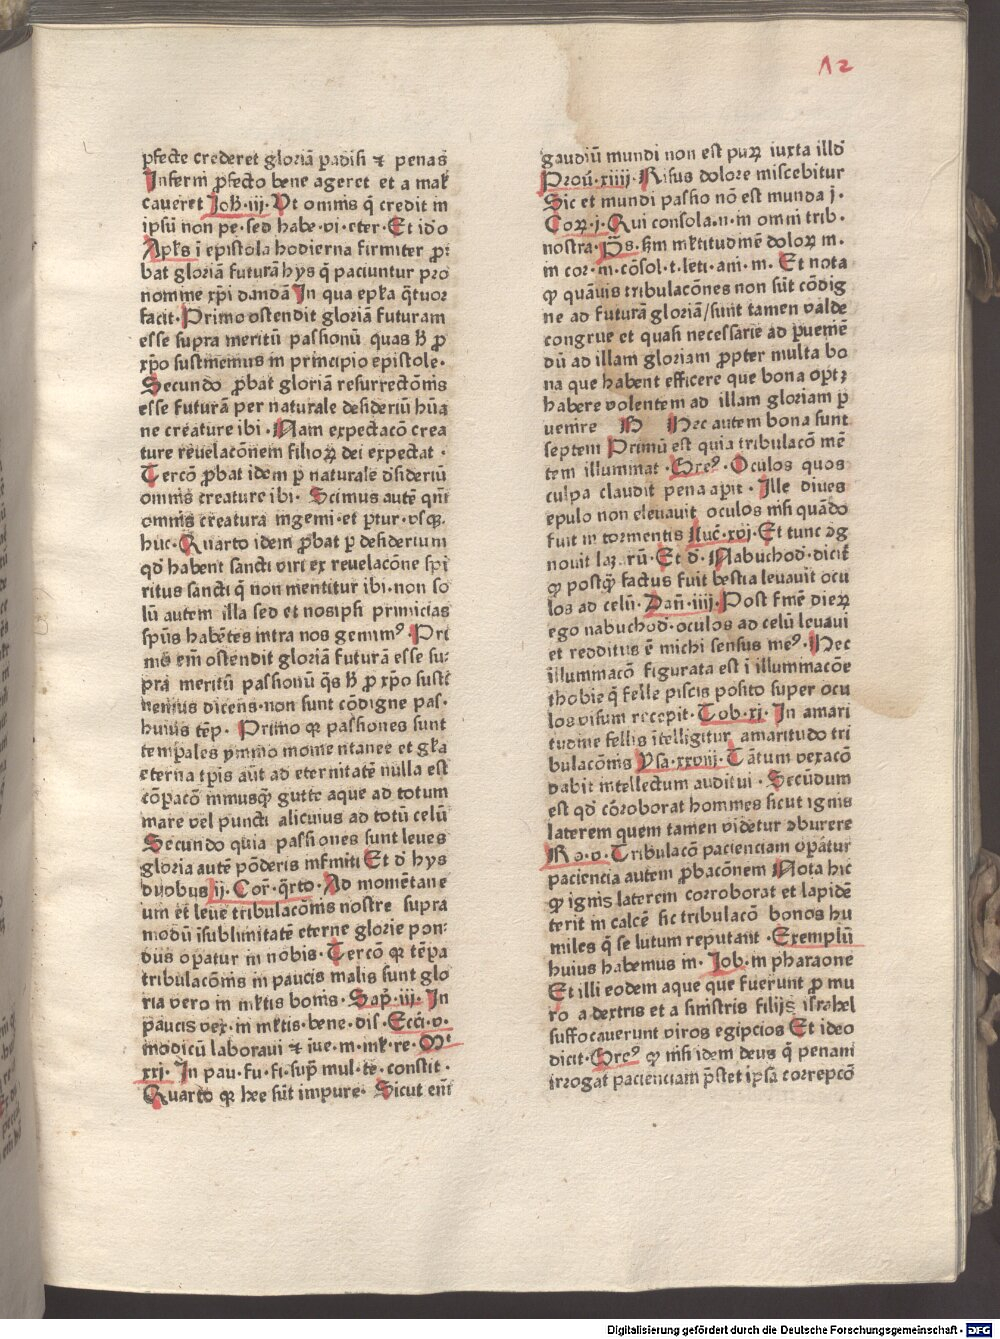 12
ꝑfecte crederet gloriā ꝑadisi ⁊ penas
Inferni ꝓfecto bene ageret et a mał
caueret Joħ·iij· Ut omnis q̄ credit in
ipsū non pe·sed habe·vi·eter·Et ido
Apl̄s ī epistola hodierna firmiter ꝓ:
bat gloriā futurā hys q̄ paciuntur pro
nomine xp̄i dandā In qua epl̄a q̄tuor
facit·Primo ostendit gloriā futuram
esse supra meritū passionū quas ħ ꝓ
xp̄o sustinemus in principio epistole·
Secundo ꝓbat gloriā resurrectōnis
esse futurā per naturale desideriū hūa
ne creature ibi·Nam expectacō crea
ture reuelacōnem filioꝝ dei expectat·
Tercō ꝓbat idem ꝑ naturale d̄sideriū
omnis creature ibi· Scimus autē qm̄
omnis creatura ingemi·et ꝑtur·vsqꝫ·
huc·Quarto idem ꝓbat ꝑ desiderium
qd̄ habent sancti viri ex reuelacōne spī
ritus sancti q̄ non mentitur ibi·non so
lū autem illa sed et nosipsi primicias
sp̄us habētes intra nos gemimꝰ·Pri
mo em̄ ostendit gloriā futurā esse su:
pra meritū passionū q̄s ħ ꝓ xp̄o susti
nemus dicens·non sunt cōdigne pas·
huius tēp· Primo qꝛ passiones sunt
temꝑales ymmo momentanee et gl̄ia
eterna tꝑis aūt ad eternitatē nulla est
cōpacō minusqꝫ gutte aque ad totum
mare vel puncti alicuius ad totū celū
Secundo quia passiones sunt leues
gloria autē pōderis infiniti Et d̄ hys
duobus ij·Cor̄·q̄rto·Ad momētane
um et leue tribulacōnis nostre supra
modū īsublimitatē eterne glorie pon:
dus oꝑatur in nobis·Tercō qꝛ tēꝑa
tribulacōnis in paucis malis sunt glo
ria vero in ml̄tis bonis·Sap̄·iij·In
paucis vex·in ml̄tis·bene·dis·Ecci·v·
modicū laboraui ⁊ iue·m·ml̄·re·Mᵗ
xxj·In pau·fu·fi·sup̄ mul·te·constit·
Quarto qꝛ hee sūt impure· Sicut em̄
gaudiū mundi non est puꝝ iuxta illd̄
Prou̅·xiiij·Risus dolore miscebitur
Sic et mundi passio nō est munda j·
Corꝝ·j·Qui consola·n·in omni trib·
nostra·P̄s·sm̄ ml̄titudinē doloꝝ m·
in cor·m·cōsol·t·leti·ani·m· Et nota
qꝫ quāuis tribulacōnes non sūt cōdig
ne ad futurā gloriā/sunt tamen valde
congrue et quasi necessarie ad ꝑueniē
dū ad illam gloriam ꝓpter multa bo
na que habent efficere que bona oꝑtꝫ
habere volentem ad illam gloriam ꝑ
uenire H Hec autem bona sunt
septem Primū est quia tribulacō mē
tem illuminat·Greꝰ·Oculos quos
culpa claudit pena aꝑit·Ille diues
epulo non eleuauit oculos nisi quādo
fuit in tormentis Luc̄·xvj·Et tunc ꝯg
nouit lazarū·Et d̄·Nabuchod̄·dicit̄
qꝫ postqꝫ factus fuit bestia leuauit ocu
los ad celū·Dan̄·iiij·Post finē dieꝝ
ego nabuchod̄·oculos ad celū leuaui
et redditus ē michi sensus meꝰ·Hec
illuminacō figurata est ī illuminacōe
thobie q̄ felle piscis posito super ocu
los visum recepit·Tob·xj·In amari
tudine fellis ītelligitur amaritudo tri
bulacōnis Ysa·xxviij·Tātum vexacō
dabit intellectum auditui·Secūdum
est qd̄ cōroborat homines sicut ignis
laterem quem tamen videtur ꝯburere
Ro·v·Tribulacō pacienciam oꝑatur
paciencia autem ꝓbacōnem Nota hic
qꝫ ignis laterem corroborat et lapidē
terit in calcē sic tribulacō bonos hu
miles q̄ se lutum reputant·Exemplū
huius habemus in·Job·in pharaone
Et illi eodem aque que fuerunt ꝓ mu
ro a dextris et a sinistris filijs israhel
suffocauerunt viros egipcios Et ideo
dicit·Greꝰ qꝫ nisi idem deus q̄ penam
irrogat pacienciam p̄stet ip̄sa correpcō
Digitalisierung gefördert durch die Deutsche Forschungsgemeinschaft - DFG